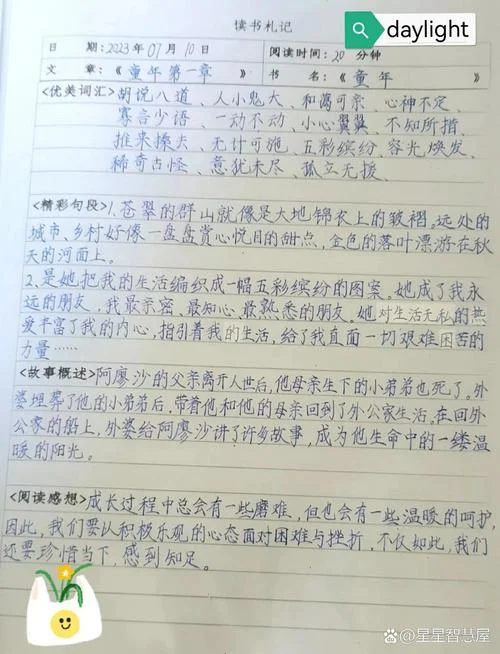 daylight
读书札记
日 期:2023年07月10日 阅读时间:20 分钟
文 章:《童年第一章》 书 名:《童年》
<优美词汇>胡说八道、人小鬼大、和蔼可亲、心神不定、
寡言少语、一动不动、小心翼翼、不知所措、
推来搡去、无计可施、五彩缤纷、容光焕发、
稀奇古怪、意犹未尽、孤立无援、
<精彩句段>1.苍翠的群山就像是大地锦衣上的皱褶。远处的
城市、乡村好像一盘盘赏心悦目的甜点,金色的落叶漂游在秋
天的河面上。
2.是她把我的生活编织成一幅五彩缤纷的图案。她成了我永
远的朋友,我最亲密、最知心、最熟悉的朋友,她对生活无私的热
爱丰富了我的内心,指引着我的生活,给了我直面一切艰难困苦的
力量……
<故事概述>阿廖沙的父亲离开人世后,他母亲生下的小弟弟也死了。外
婆埋葬了他的小弟弟后,带着他和他的母亲回到了外公家生活。在回外
公家的船上,外婆给阿廖沙讲了许多故事,成为他生命中的一缕温
暖的阳光。
<阅读感想>成长过程中总会有一些磨难,但也会有一些温暖的呵护,
因此,我们要以积极乐观的心态面对困难与挫折,不仅如此,我们
还要珍惜当下,感到知足。
星星智慧屋